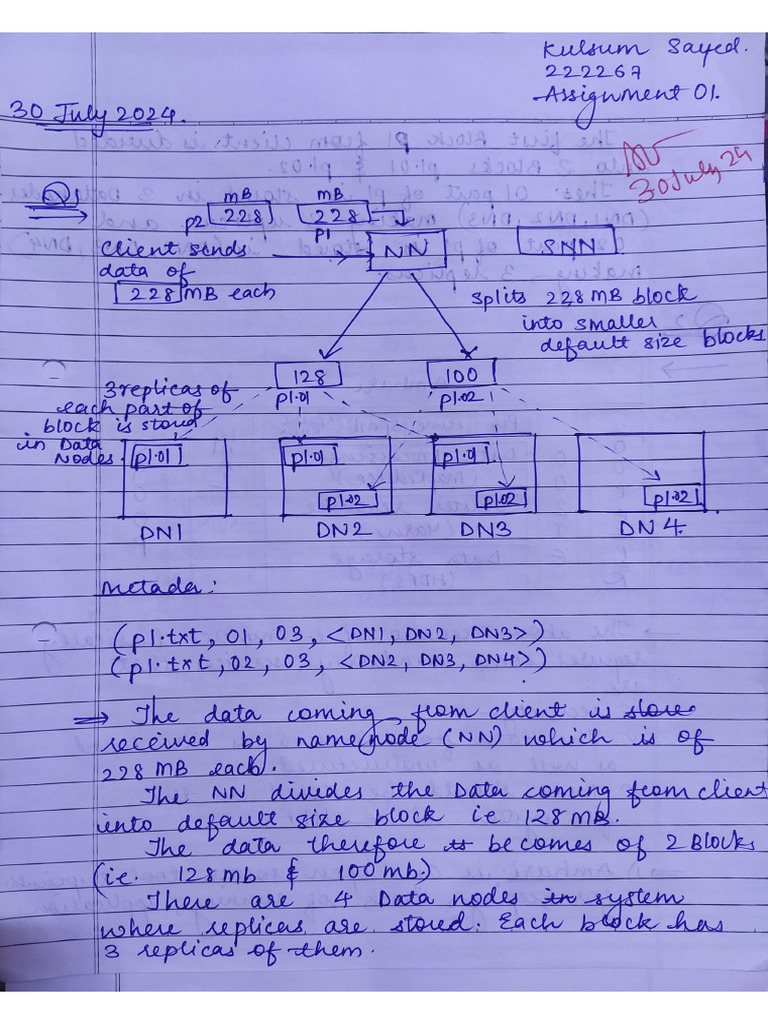 Kulsum Sayed.
222267
Assignment 01.
30 July 2024.
30 July 24
Q1
mB mB
p2 228 228
p1
NN SNN
Client sends
data of
228 MB each
Splits 228 MB block
into smaller
default size blocks
128 100
p1.01 p1.02
3 replicas of
each part of
block is stored
in Data
Nodes.
p1.01 p1.01 p1.01
p1.02 p1.02 p1.02
DN1 DN2 DN3 DN4.
Metada:
(p1.txt, 01, 03, <DN1, DN2, DN3>)
(p1.txt, 02, 03, <DN2, DN3, DN4>)
⇒ The data coming from client is store
received by name node (NN) which is of
228 MB each.
The NN divides the Data coming from client
into default size block ie 128 MB.
The data therefore is becomes of 2 Blocks
(ie. 128 mb & 100 mb.)
There are 4 Data nodes in system
where replicas are stored. Each block has
3 replicas of them.